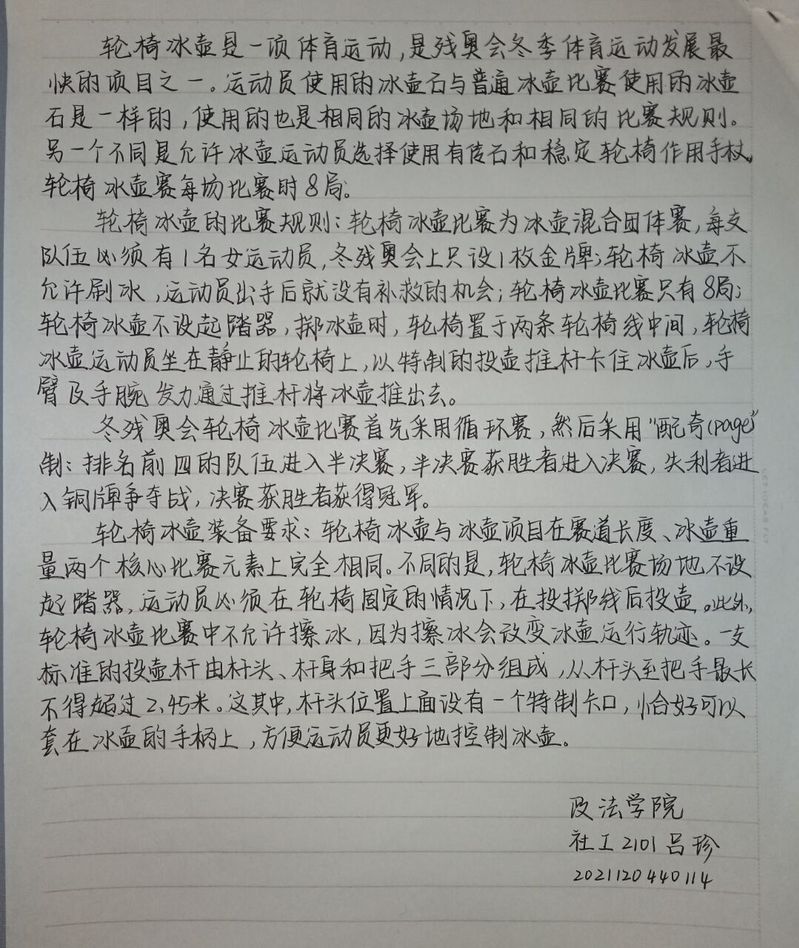 轮椅冰壶是一项体育运动,是残奥会冬季体育运动发展最
快的项目之一。运动员使用的冰壶石与普通冰壶比赛使用的冰壶
石是一样的,使用的也是相同的冰壶场地和相同的比赛规则。
另一个不同是允许冰壶运动员选择使用有传石和稳定轮椅作用手杖,
轮椅冰壶赛每场比赛时8局。
轮椅冰壶的比赛规则:轮椅冰壶比赛为冰壶混合团体赛,每支
队伍必须有1名女运动员,冬残奥会上只设1枚金牌;轮椅冰壶不
允许刷冰,运动员出手后就没有补救的机会;轮椅冰壶比赛只有8局;
轮椅冰壶不设起踏器,掷冰壶时,轮椅置于两条轮椅线中间,轮椅
冰壶运动员坐在静止的轮椅上,以特制的投壶推杆卡住冰壶后,手
臂及手腕发力通过推杆将冰壶推出去。
冬残奥会轮椅冰壶比赛首先采用循环赛,然后采用“配奇(page)”
制:排名前四的队伍进入半决赛,半决赛获胜者进入决赛,失利者进
入铜牌争夺战,决赛获胜者获得冠军。
轮椅冰壶装备要求:轮椅冰壶与冰壶项目在赛道长度、冰壶重
量两个核心比赛元素上完全相同。不同的是,轮椅冰壶比赛场地不设
起踏器,运动员必须在轮椅固定的情况下,在投掷线后投壶。此外,
轮椅冰壶比赛中不允许擦冰,因为擦冰会改变冰壶运行轨迹。一支
标准的投壶杆由杆头、杆身和把手三部分组成,从杆头至把手最长
不得超过2.45米。这其中,杆头位置上面设有一个特制卡口,恰好可以
套在冰壶的手柄上,方便运动员更好地控制冰壶。
政法学院
社工2101吕珍
2021120440114